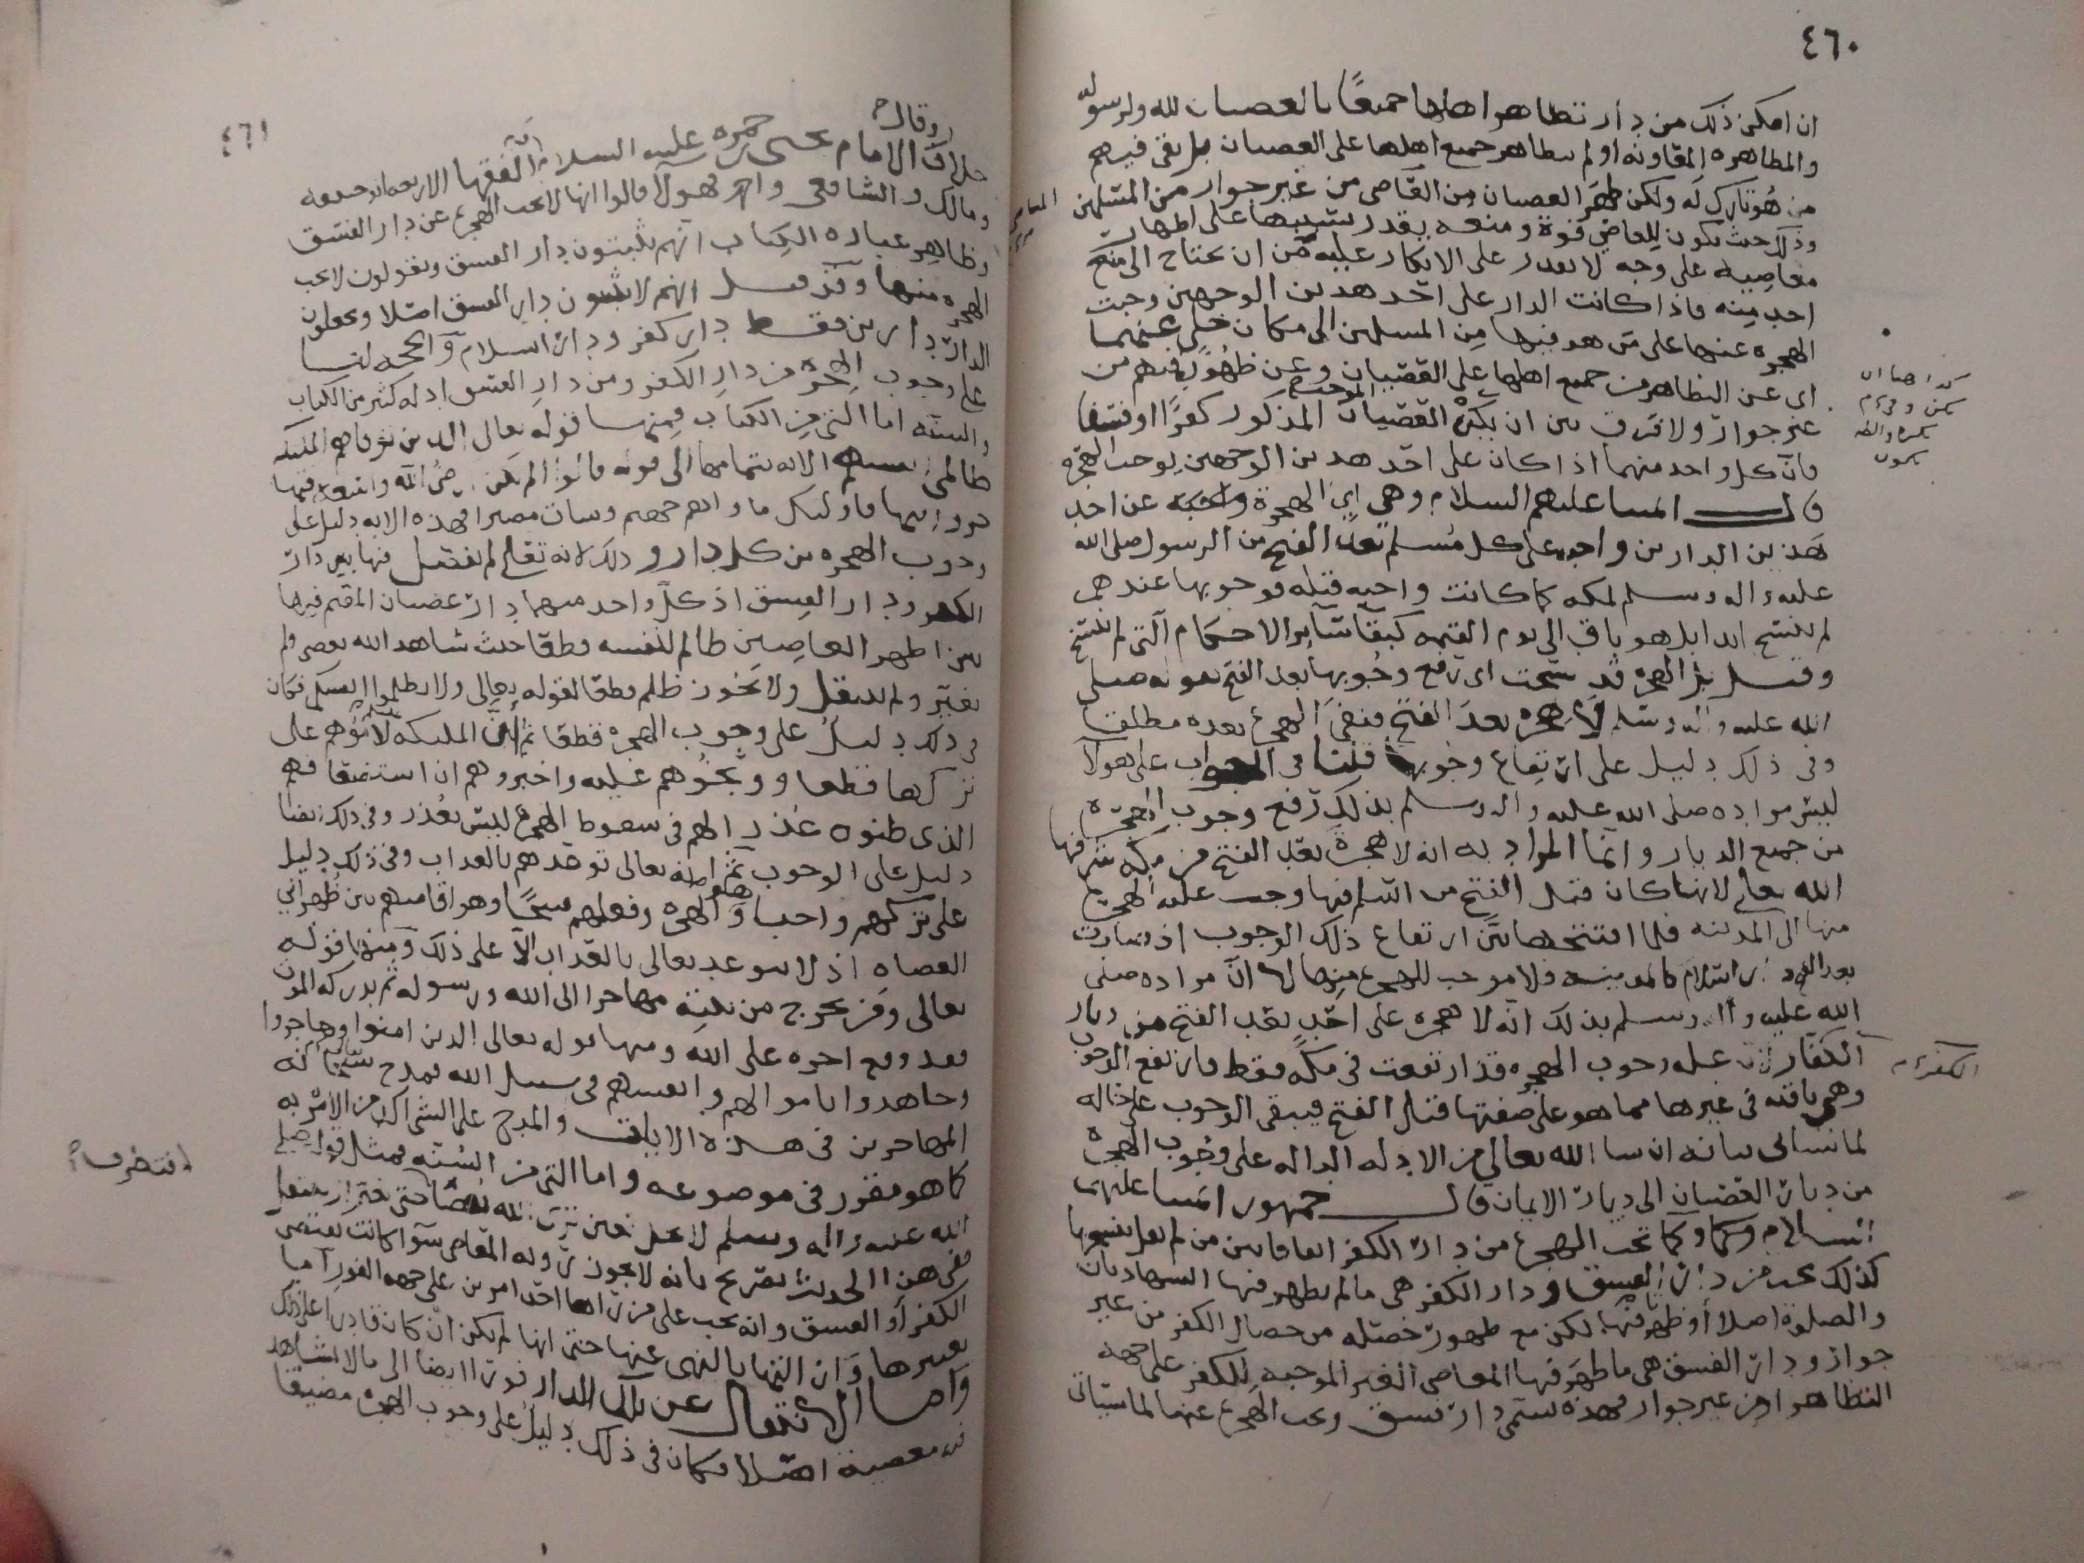 ٤٦٠
ان امكن ذلك من دار تظاهر اهلها جميعًا بالعصيان لله ولرسوله
والمظاهره المعاونه او لم يتظاهر جميع اهلها على العصيان بل بقى فيهم
من هو تارك له ولكن ظهر العصيان من العاصى من غير جوار من المسلمين
وذلك حيث يكون للعاصى قوة ومنعه يقدر بسببها على اظهار
معاصيه على وجه لا يقدر على الانكار عليه من ان يحتاج الى
احد منه فاذا كانت الدار على احد هذين الوجهين وجبت
الهجره عنها على من هو فيها من المسلمين الى مكان خلى عنهما
اى عن التظاهر من جميع اهلها على العصيان وعن ظهوره فيهم من
غير جوار ولا فرق بين ان يكون العصيان المذكور كفرًا او فسقا
فان كل واحد منهما اذا كان على احد هذين الوجهين يوجب الهجره
قال ائمتنا عليهم السلام وهى اى الهجرة واجبه عن احد
هذين الدارين واجبه على كل مسلم بعد الفتح من الرسول صلى الله
عليه واله وسلم لمكه كما كانت واجبه قبله فوجوبها عندهم
لم ينسخ ابدا بل هو باق الى يوم القيمه كبقا سآير الاحكام التى لم تنسخ
وقيل بل الهجره قد نسخت اى رفع وجوبها بعد الفتح بقوله صلى
الله عليه واله وسلم لا هجره بعد الفتح فنفى الهجره بعده مطلقا
وفى ذلك دليل على ارتفاع وجوبها قلنا فى الجواب على هولا
ليس مراده صلى الله عليه واله وسلم بذلك رفع وجوب الهجره
من جميع الديار وانما المراد به انه لا هجرة بعد الفتح من مكه شرفها
الله تعالى لانها كان قبل الفتح من اسلم فيها وجب عليه الهجره
منها الى المدينه فلما افتتحها بيّن ارتفاع ذلك الوجوب اذ صارت
بعد الفتح دار اسلام كالمدينه ولا موجب للهجره منها لا انّ مراده صلى
الله عليه واله وسلم بذلك انه لا هجره على احد بعد الفتح من ديار
الكفار لان عله وجوب الهجره قد ارتفعت فى مكه فقط فارتفع الوجوب
وهى باقيه فى غيرها مما هو على صفتها قبل الفتح فيبقى الوجوب على حاله
لما سياتى بيانه ان شا الله تعالى من الادله الداله على وجوب الهجره
من ديار العصيان الى ديار الايمان قال جمهور ائمتنا عليهم
السلام وكما تجب الهجره من دار الكفر
كذلك تجب من دار الفسق ودار الكفر هى ما لم يظهر فيها الشهادتان
والصلوة اصلا او ظهر فيها لكن مع ظهور خصله من خصال الكفر من غير
جوار ودار الفسق هى ما ظهر فيها المعاصى الغير الموجبه للكفر على جهه
التظاهر او من غير جوار فهذه تسمى دار فسق وتجب الهجره عنها لما سياتى
الكفر
٤٦١
وقال
خلافا الامام يحيى حمزه عليه السلام الفقها الاربعه ابو حنيفه
ومالك والشافعى واحمد فهولا قالوا انها لا تجب الهجره عن دار الفسق
وظاهر عباره الكتاب انهم يثبتون دار الفسق ويقولون لا تجب
الهجره منها وقد قيل انهم لا يثبتون دار الفسق اصلا ويجعلون
الدار دارين فقط دار كفر ودار اسلام والحجه لنا
على وجوب الهجره من دار الكفر ومن دار الفسق ادله كثير من الكتاب
والسنه اما التى من الكتاب فمنها قوله تعالى الذين توفاهم الملئكه
ظالمى انفسهم الايه بتمامها الى قوله قالوا الم تكن ارض الله واسعه فتها
جروا فيها فاولئك ماواهم جهنم وسات مصيرا فهذه الايه دليل على
وجوب الهجره من كل دار وذلك لانه تعالى لم يفصل فيها بين دار
الكفر ودار الفسق اذ كل واحد منهما دار عصيان المقيم فيها
بين اظهر العاصين ظالم لنفسه قطعا حيث شاهد الله يعصى ولم
يغير ولم ينتقل ولا يجوز ظلم قطعا لقوله تعالى ولا تظلموا انفسكم فكان
فى ذلك دليل على وجوب الهجره قطعا ثم ان الملئكه لاموهم على
تركها قطعا ووبخوهم عليه واخبروهم ان استضعافهم
الذى ظنوه عذرا لهم فى سقوط الهجره ليس بعذر وفى ذلك ايضا
دليل على الوجوب ثم انه تعالى توعدهم بالعذاب وفى ذلك دليل
على تركهم واجبا وهو الهجره وفعلهم قبيحًا وهو اقامتهم بين ظهرانى
العصاه اذ لا يتوعد تعالى بالعذاب الا على ذلك ومنها قوله
تعالى ومن يخرج من بيته مهاجرا الى الله ورسوله ثم يدركه الموت
فقد وقع اجره على الله ومنها قوله تعالى الذين امنوا وهاجروا
وجاهدوا باموالهم وانفسهم فى سبيل الله فمدح سبحانه
المهاجرين فى هذه الايات والمدح على الشى اكد من الامر به
كما هو مقرر فى موضوعه واما التى من السنه فمثل قوله صلى
الله عليه واله وسلم لا يحل لعين ترى الله يعصى حتى تغير او تنتقل
ففى هذا الحديث تصريح بانه لا يجوز رويه المعاصى سوآ كانت تقتضى
الكفر او الفسق وانه يجب على من راها احد امرين على جهه الفور اما
تغييرها وان انتها بالنهى عنها حتى انها لم تكن ان كان قادرا على ذلك
واما الانتقال عن تلك الدار فورا ايضا الى ما لا يشاهد
فيه معصية اصلا فكان فى ذلك دليل على وجوب الهجره مضيقا